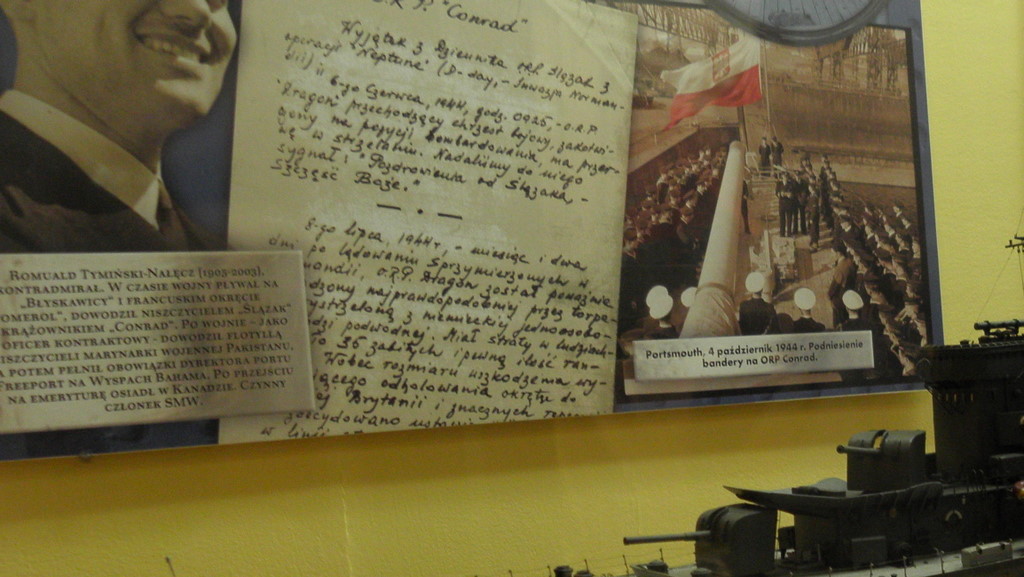 O.R.P. "Conrad"
Wyjątek z Dziennika ORP. Ślązak z
operacji "Neptune" (D-day, - Inwazja Norman-
dii):
" 6-go Czerwca, 1944, godz. 0925, - O.R.P.
Dragon przechodzący
na pozycji bombardowania, ma przer-
wę w strzelaniu. Nadaliśmy do niego
sygnał: "Pozdrowienia od Ślązaka, -
Szczęść Boże."
8-go lipca, 1944r. - miesiąc i dwa
dni po lądowaniu Sprzymierzonych w
mandii, O.R.P. Dragon został poważnie
dzony najprawdopodobniej przez torpe-
wystrzeloną z niemieckiej jednoosobo-
łodzi podwodnej. Miał straty w ludziach
36 zabitych i pewną ilość ran-
Wobec rozmiaru uszkodzenia wy-
jącego odholowania okrętu do
Brytanii i znacznych
zdecydowano
w linii
Romuald Tymiński-Nałęcz (1905-2003).
Kontradmirał. W czasie wojny pływał na
„Błyskawicy" i francuskim okręcie
Pomerol", dowodził niszczycielem „Ślązak"
krążownikiem „Conrad". Po wojnie - jako
oficer kontraktowy - dowodził flotyllą
iszczycieli Marynarki Wojennej Pakistanu,
a potem pełnił obowiązki dyrektora portu
Freeport na Wyspach Bahama. Po przejściu
na emeryturę osiadł w Kanadzie. Czynny
członek SMW.
Portsmouth, 4 październik 1944 r. Podniesienie
bandery na ORP Conrad.